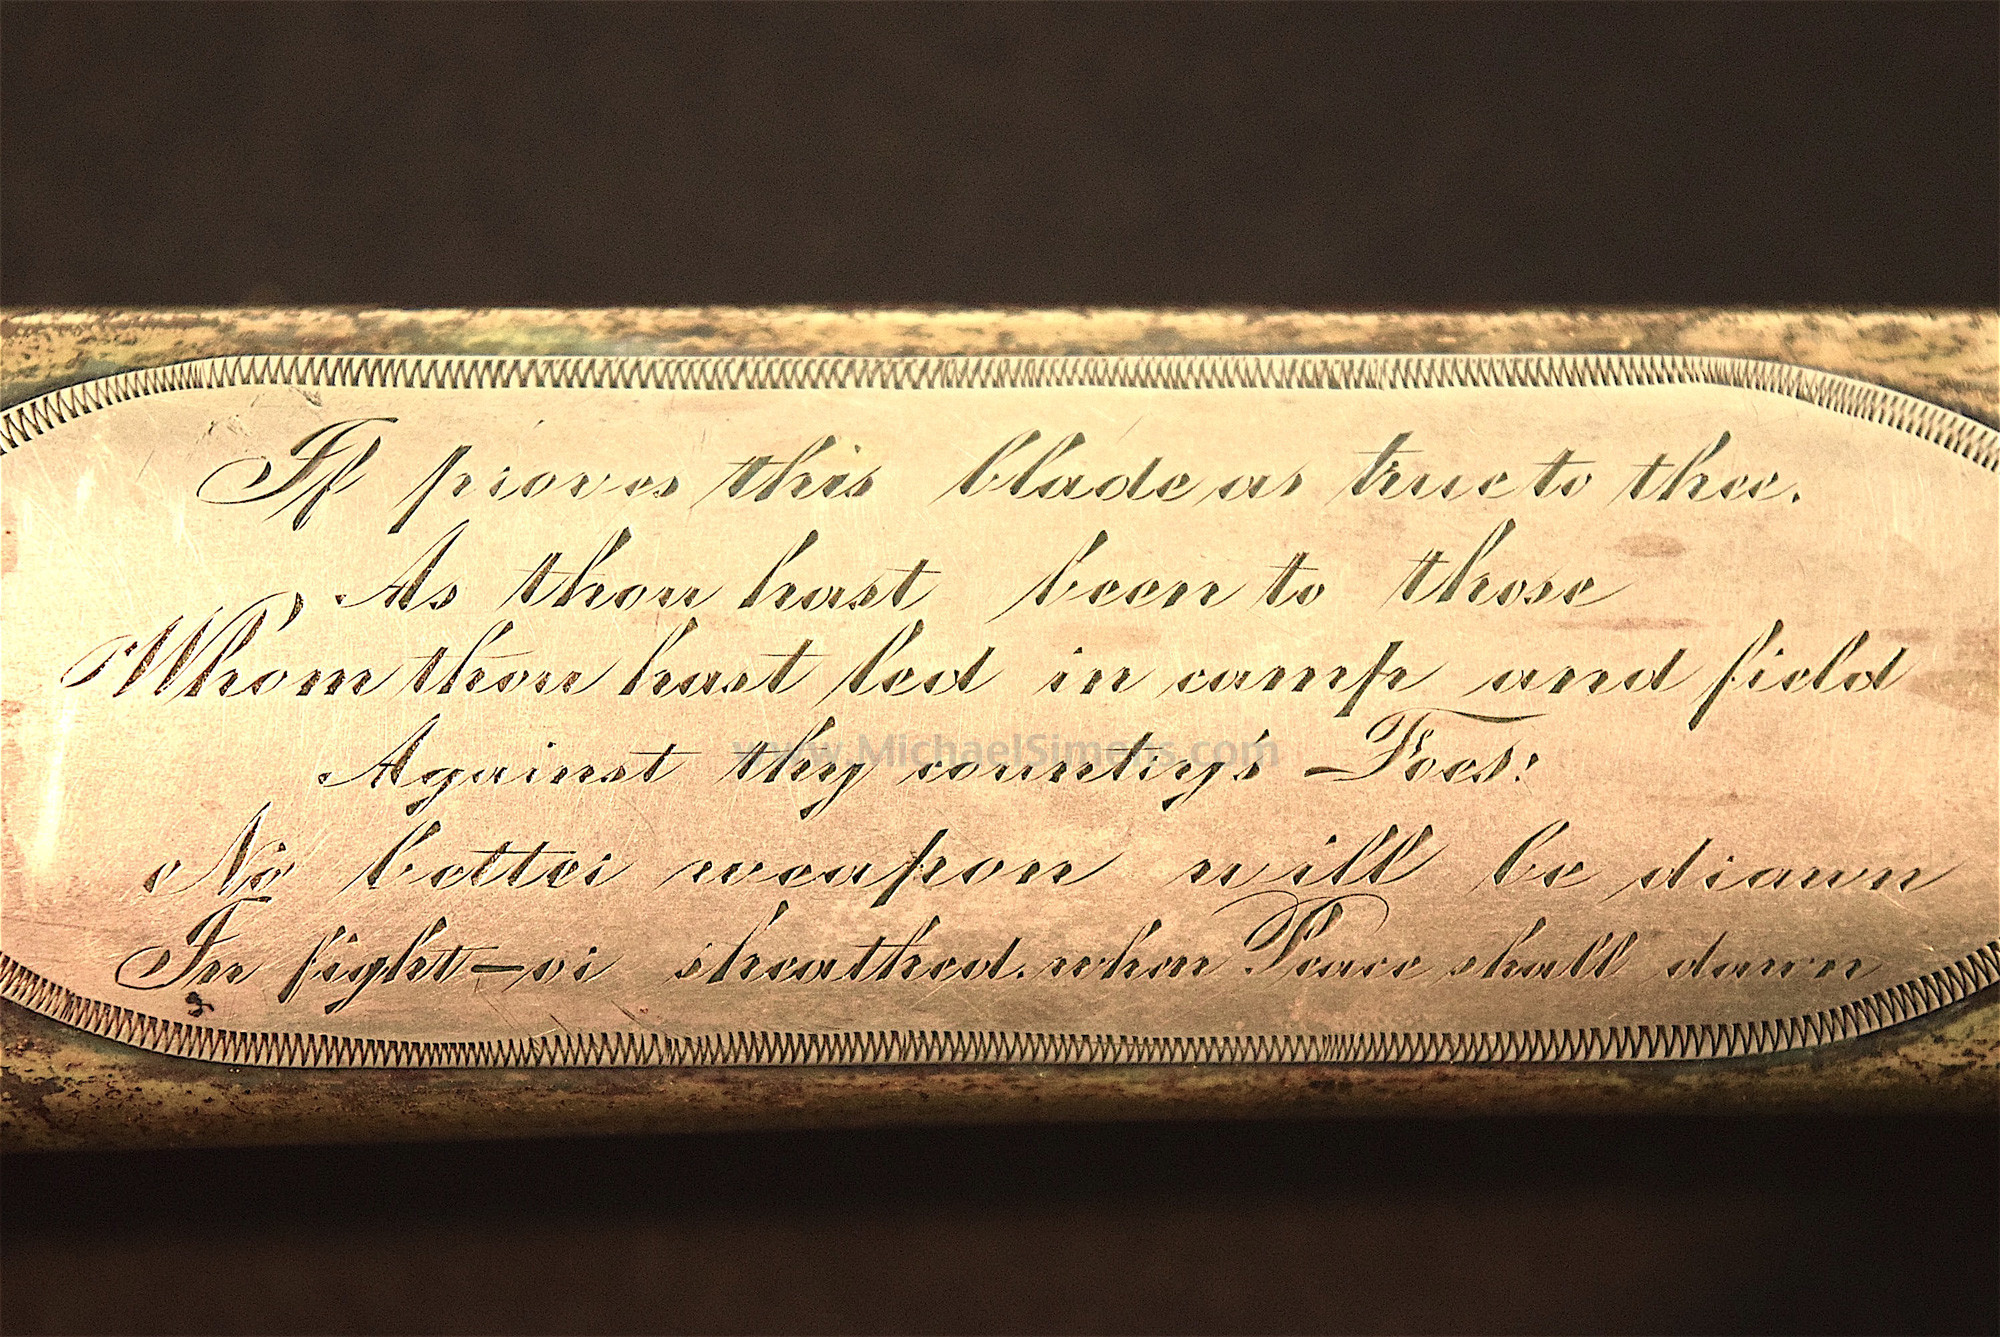 If proves this blade as true to thee.
As thou hast been to those
Whom thou hast led in camp and field
Against thy country's Foes:
No better weapon will be drawn
In fight—or sheathed. when Peace shall dawn
www.MichaelSimens.com